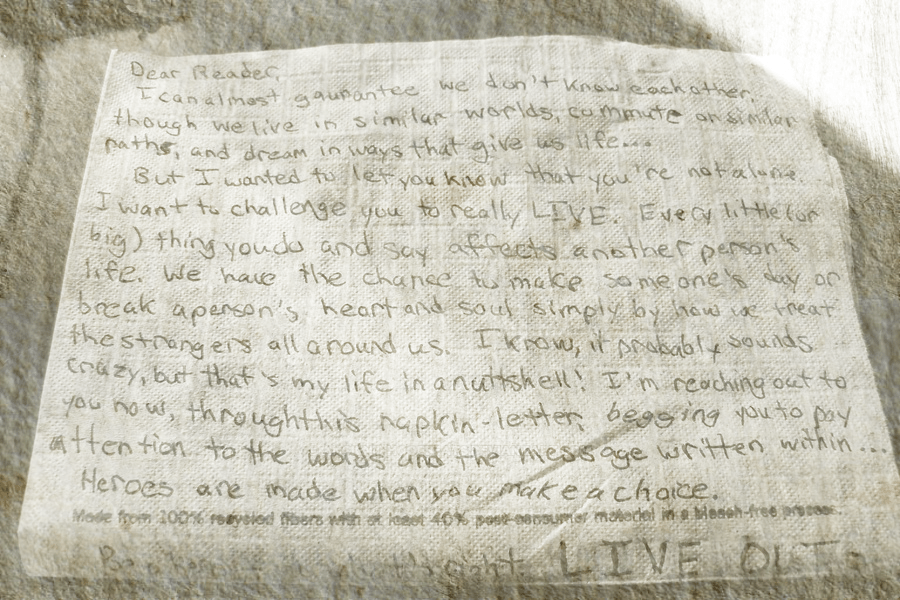 Dear Reader,
I can almost gaurantee we don't know eachother,
though we live in similar worlds, commute on similar
paths, and dream in ways that give us life...
But I wanted to let you know that you're not alone.
I want to challenge you to really LIVE. Every little (or
big) thing you do and say affects another person's
life. We have the chance to make someone's day or
break a person's heart and soul simply by how we treat
the strangers all around us. I know, it probably sounds
crazy, but that's my life in a nuttshell! I'm reaching out to
you now, through this napkin-letter, begging you to pay
attention to the words and the message written within...
Heroes are made when you make a choice.
Made from 100% recycled fibers with at least 40% post-consumer material in a bleach-free process.
LIVE OUT